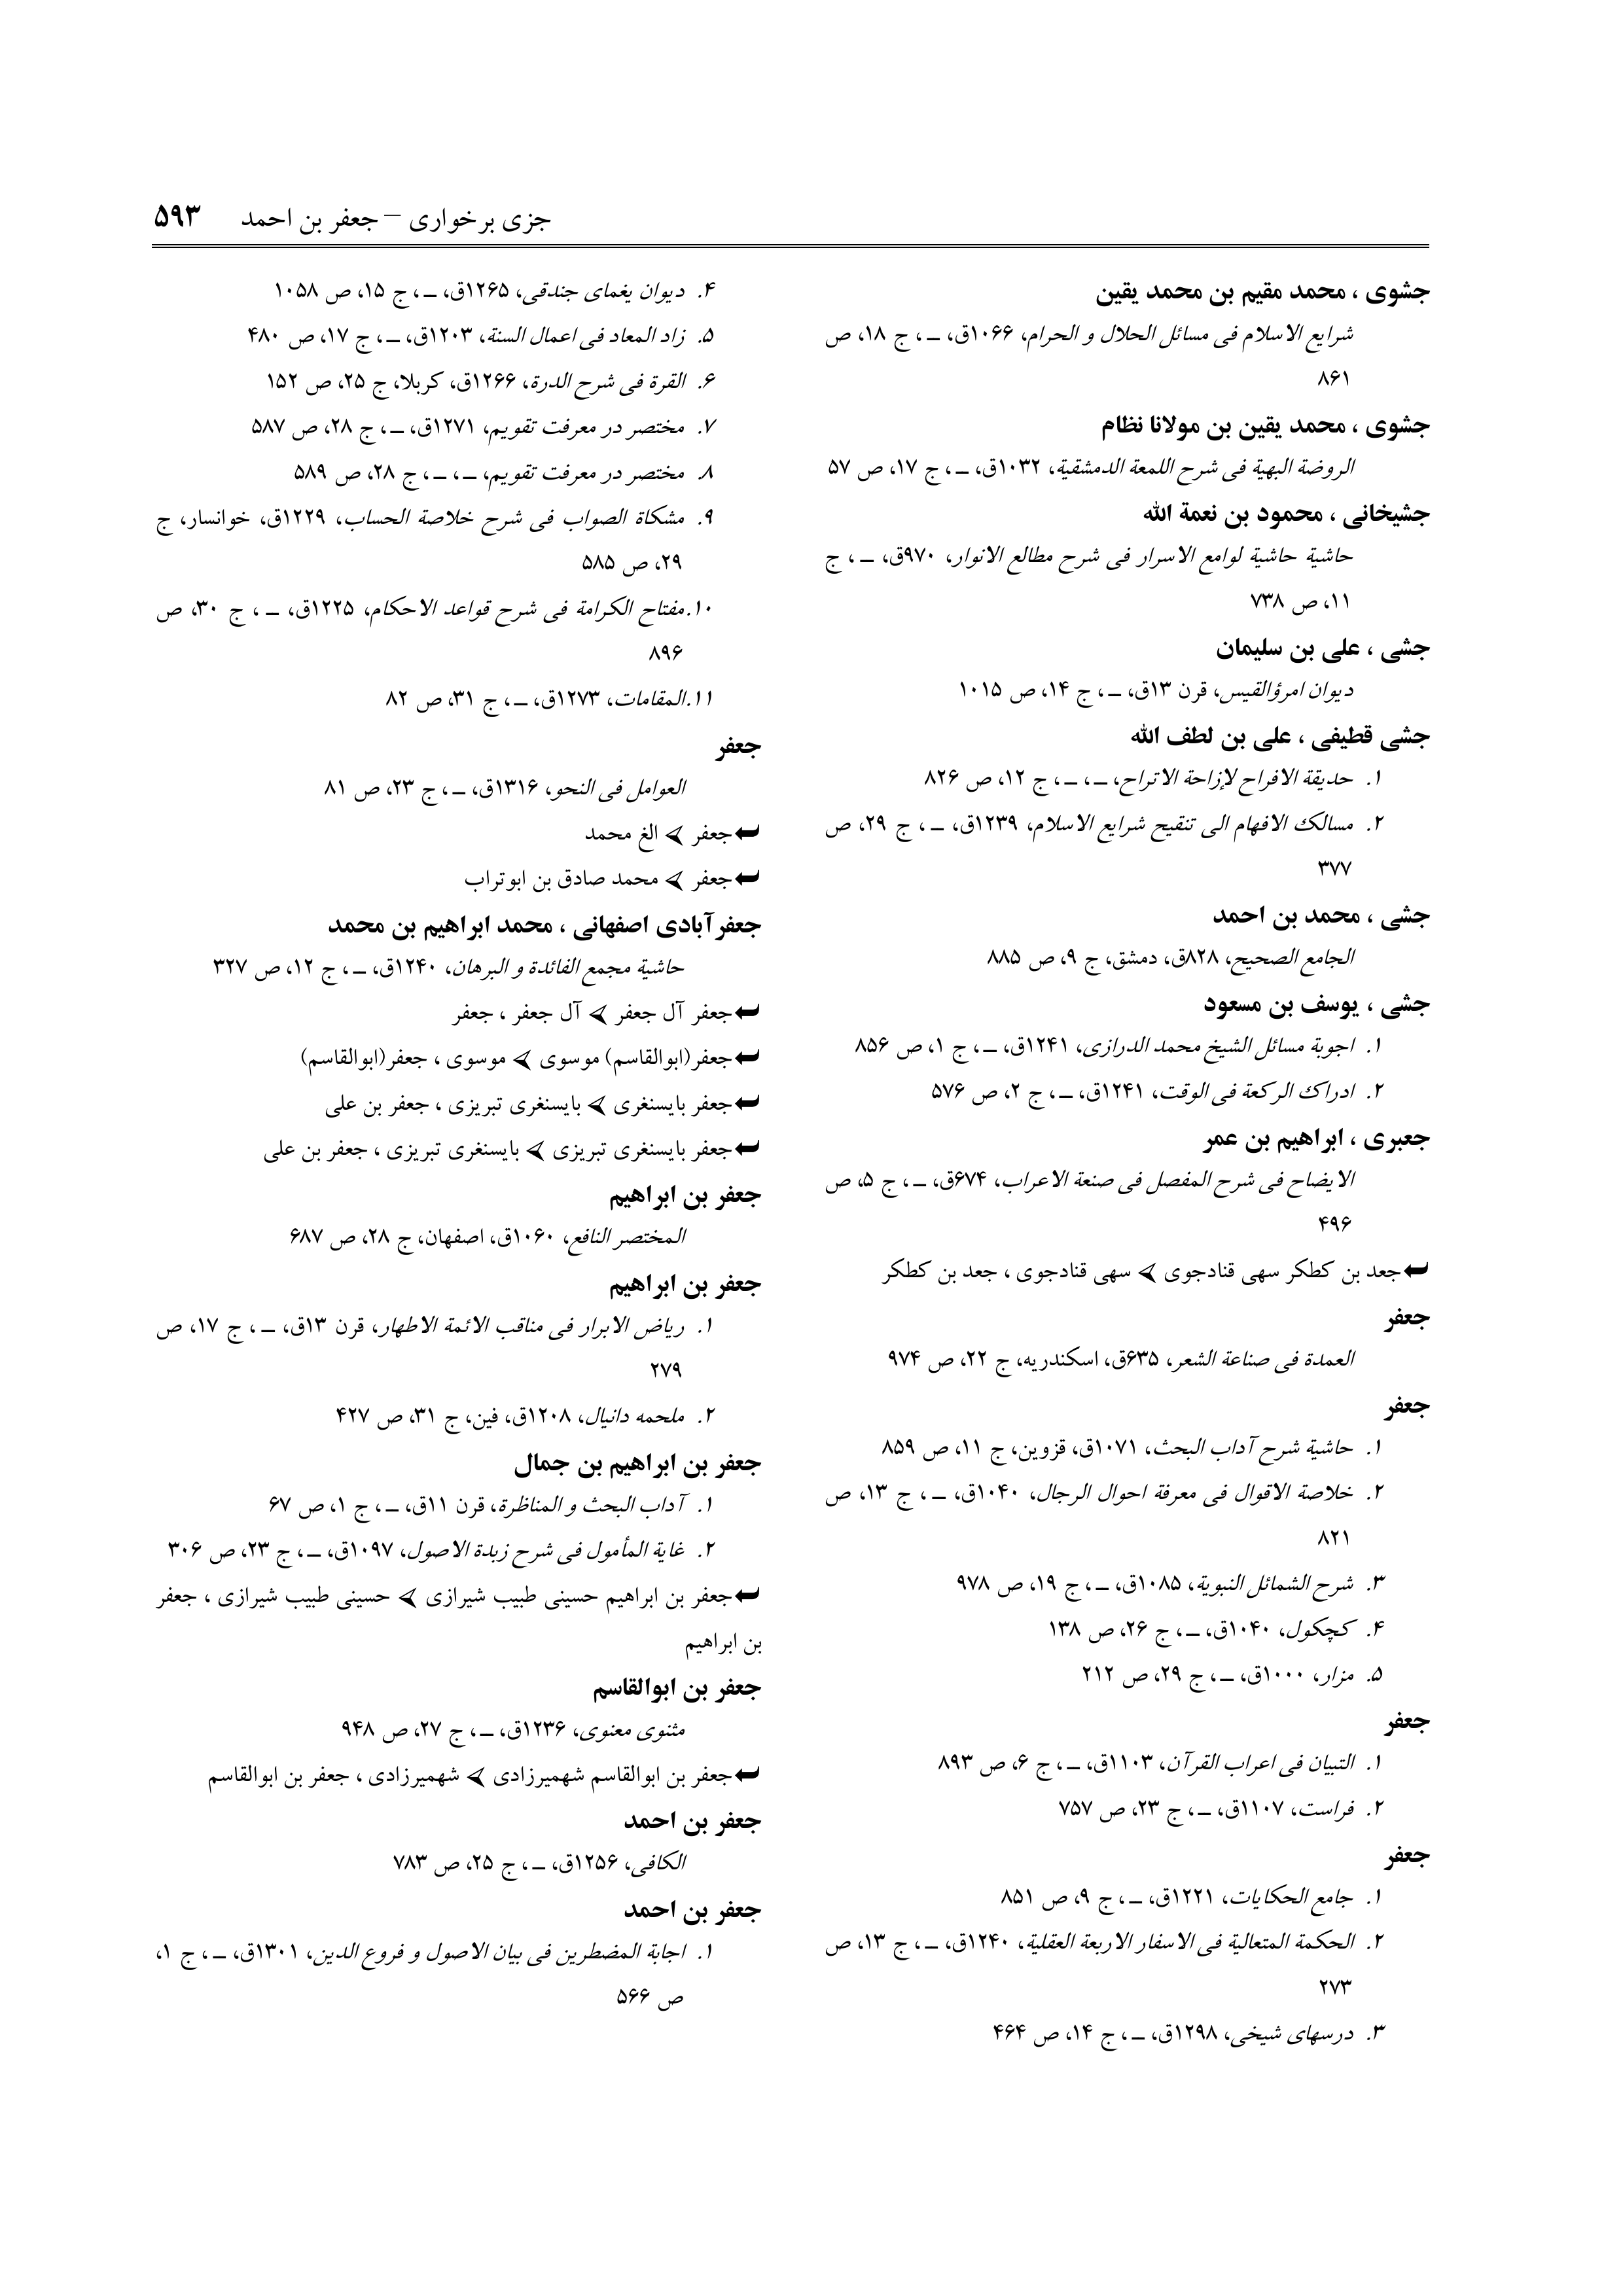 جزی برخواری – جعفر بن احمد ۵۹۳
جشوی ، محمد مقیم بن محمد یقین
شرایع الاسلام فی مسائل الحلال و الحرام، ۱۰۶۶ق، ـ ، ج ۱۸، ص
۸۶۱
جشوی ، محمد یقین بن مولانا نظام
الروضة البهیة فی شرح اللمعة الدمشقیة، ۱۰۳۲ق، ـ ، ج ۱۷، ص ۵۷
جشیخانی ، محمود بن نعمة الله
حاشیة حاشیة لوامع الاسرار فی شرح مطالع الانوار، ۹۷۰ق، ـ ، ج
۱۱، ص ۷۳۸
جشی ، علی بن سلیمان
دیوان امرؤالقیس، قرن ۱۳ق، ـ ، ج ۱۴، ص ۱۰۱۵
جشی قطیفی ، علی بن لطف الله
۱. حدیقة الافراح لإزاحة الاتراح، ـ ، ـ ، ج ۱۲، ص ۸۲۶
۲. مسالک الافهام الی تنقیح شرایع الاسلام، ۱۲۳۹ق، ـ ، ج ۲۹، ص
۳۷۷
جشی ، محمد بن احمد
الجامع الصحیح، ۸۲۸ق، دمشق، ج ۹، ص ۸۸۵
جشی ، یوسف بن مسعود
۱. اجوبة مسائل الشیخ محمد الدرازی، ۱۲۴۱ق، ـ ، ج ۱، ص ۸۵۶
۲. ادراک الرکعة فی الوقت، ۱۲۴۱ق، ـ ، ج ۲، ص ۵۷۶
جعبری ، ابراهیم بن عمر
الایضاح فی شرح المفصل فی صنعة الاعراب، ۶۷۴ق، ـ ، ج ۵، ص
۴۹۶
⬅جعد بن کطکر سهی قنادجوی ⮜ سهی قنادجوی ، جعد بن کطکر
جعفر
العمدة فی صناعة الشعر، ۶۳۵ق، اسکندریه، ج ۲۲، ص ۹۷۴
جعفر
۱. حاشیة شرح آداب البحث، ۱۰۷۱ق، قزوین، ج ۱۱، ص ۸۵۹
۲. خلاصة الاقوال فی معرفة احوال الرجال، ۱۰۴۰ق، ـ ، ج ۱۳، ص
۸۲۱
۳. شرح الشمائل النبویة، ۱۰۸۵ق، ـ ، ج ۱۹، ص ۹۷۸
۴. کچکول، ۱۰۴۰ق، ـ ، ج ۲۶، ص ۱۳۸
۵. مزار، ۱۰۰۰ق، ـ ، ج ۲۹، ص ۲۱۲
جعفر
۱. التبیان فی اعراب القرآن، ۱۱۰۳ق، ـ ، ج ۶، ص ۸۹۳
۲. فراست، ۱۱۰۷ق، ـ ، ج ۲۳، ص ۷۵۷
جعفر
۱. جامع الحکایات، ۱۲۲۱ق، ـ ، ج ۹، ص ۸۵۱
۲. الحکمة المتعالیة فی الاسفار الاربعة العقلیة، ۱۲۴۰ق، ـ ، ج ۱۳، ص
۲۷۳
۳. درسهای شیخی، ۱۲۹۸ق، ـ ، ج ۱۴، ص ۴۶۴
۴. دیوان یغمای جندقی، ۱۲۶۵ق، ـ ، ج ۱۵، ص ۱۰۵۸
۵. زاد المعاد فی اعمال السنة، ۱۲۰۳ق، ـ ، ج ۱۷، ص ۴۸۰
۶. القرة فی شرح الدرة، ۱۲۶۶ق، کربلا، ج ۲۵، ص ۱۵۲
۷. مختصر در معرفت تقویم، ۱۲۷۱ق، ـ ، ج ۲۸، ص ۵۸۷
۸. مختصر در معرفت تقویم، ـ ، ـ ، ج ۲۸، ص ۵۸۹
۹. مشکاة الصواب فی شرح خلاصة الحساب، ۱۲۲۹ق، خوانسار، ج
۲۹، ص ۵۸۵
۱۰.مفتاح الکرامة فی شرح قواعد الاحکام، ۱۲۲۵ق، ـ ، ج ۳۰، ص
۸۹۶
۱۱.المقامات، ۱۲۷۳ق، ـ ، ج ۳۱، ص ۸۲
جعفر
العوامل فی النحو، ۱۳۱۶ق، ـ ، ج ۲۳، ص ۸۱
⬅جعفر ⮜ الغ محمد
⬅جعفر ⮜ محمد صادق بن ابوتراب
جعفرآبادی اصفهانی ، محمد ابراهیم بن محمد
حاشیة مجمع الفائدة و البرهان، ۱۲۴۰ق، ـ ، ج ۱۲، ص ۳۲۷
⬅جعفر آل جعفر ⮜ آل جعفر ، جعفر
⬅جعفر(ابوالقاسم) موسوی ⮜ موسوی ، جعفر(ابوالقاسم)
⬅جعفر بایسنغری ⮜ بایسنغری تبریزی ، جعفر بن علی
⬅جعفر بایسنغری تبریزی ⮜ بایسنغری تبریزی ، جعفر بن علی
جعفر بن ابراهیم
المختصر النافع، ۱۰۶۰ق، اصفهان، ج ۲۸، ص ۶۸۷
جعفر بن ابراهیم
۱. ریاض الابرار فی مناقب الائمة الاطهار، قرن ۱۳ق، ـ ، ج ۱۷، ص
۲۷۹
۲. ملحمه دانیال، ۱۲۰۸ق، فین، ج ۳۱، ص ۴۲۷
جعفر بن ابراهیم بن جمال
۱. آداب البحث و المناظرة، قرن ۱۱ق، ـ ، ج ۱، ص ۶۷
۲. غایة المأمول فی شرح زبدة الاصول، ۱۰۹۷ق، ـ ، ج ۲۳، ص ۳۰۶
⬅جعفر بن ابراهیم حسینی طبیب شیرازی ⮜ حسینی طبیب شیرازی ، جعفر
بن ابراهیم
جعفر بن ابوالقاسم
مثنوی معنوی، ۱۲۳۶ق، ـ ، ج ۲۷، ص ۹۴۸
⬅جعفر بن ابوالقاسم شهمیرزادی ⮜ شهمیرزادی ، جعفر بن ابوالقاسم
جعفر بن احمد
الکافی، ۱۲۵۶ق، ـ ، ج ۲۵، ص ۷۸۳
جعفر بن احمد
۱. اجابة المضطرین فی بیان الاصول و فروع الدین، ۱۳۰۱ق، ـ ، ج ۱،
ص ۵۶۶